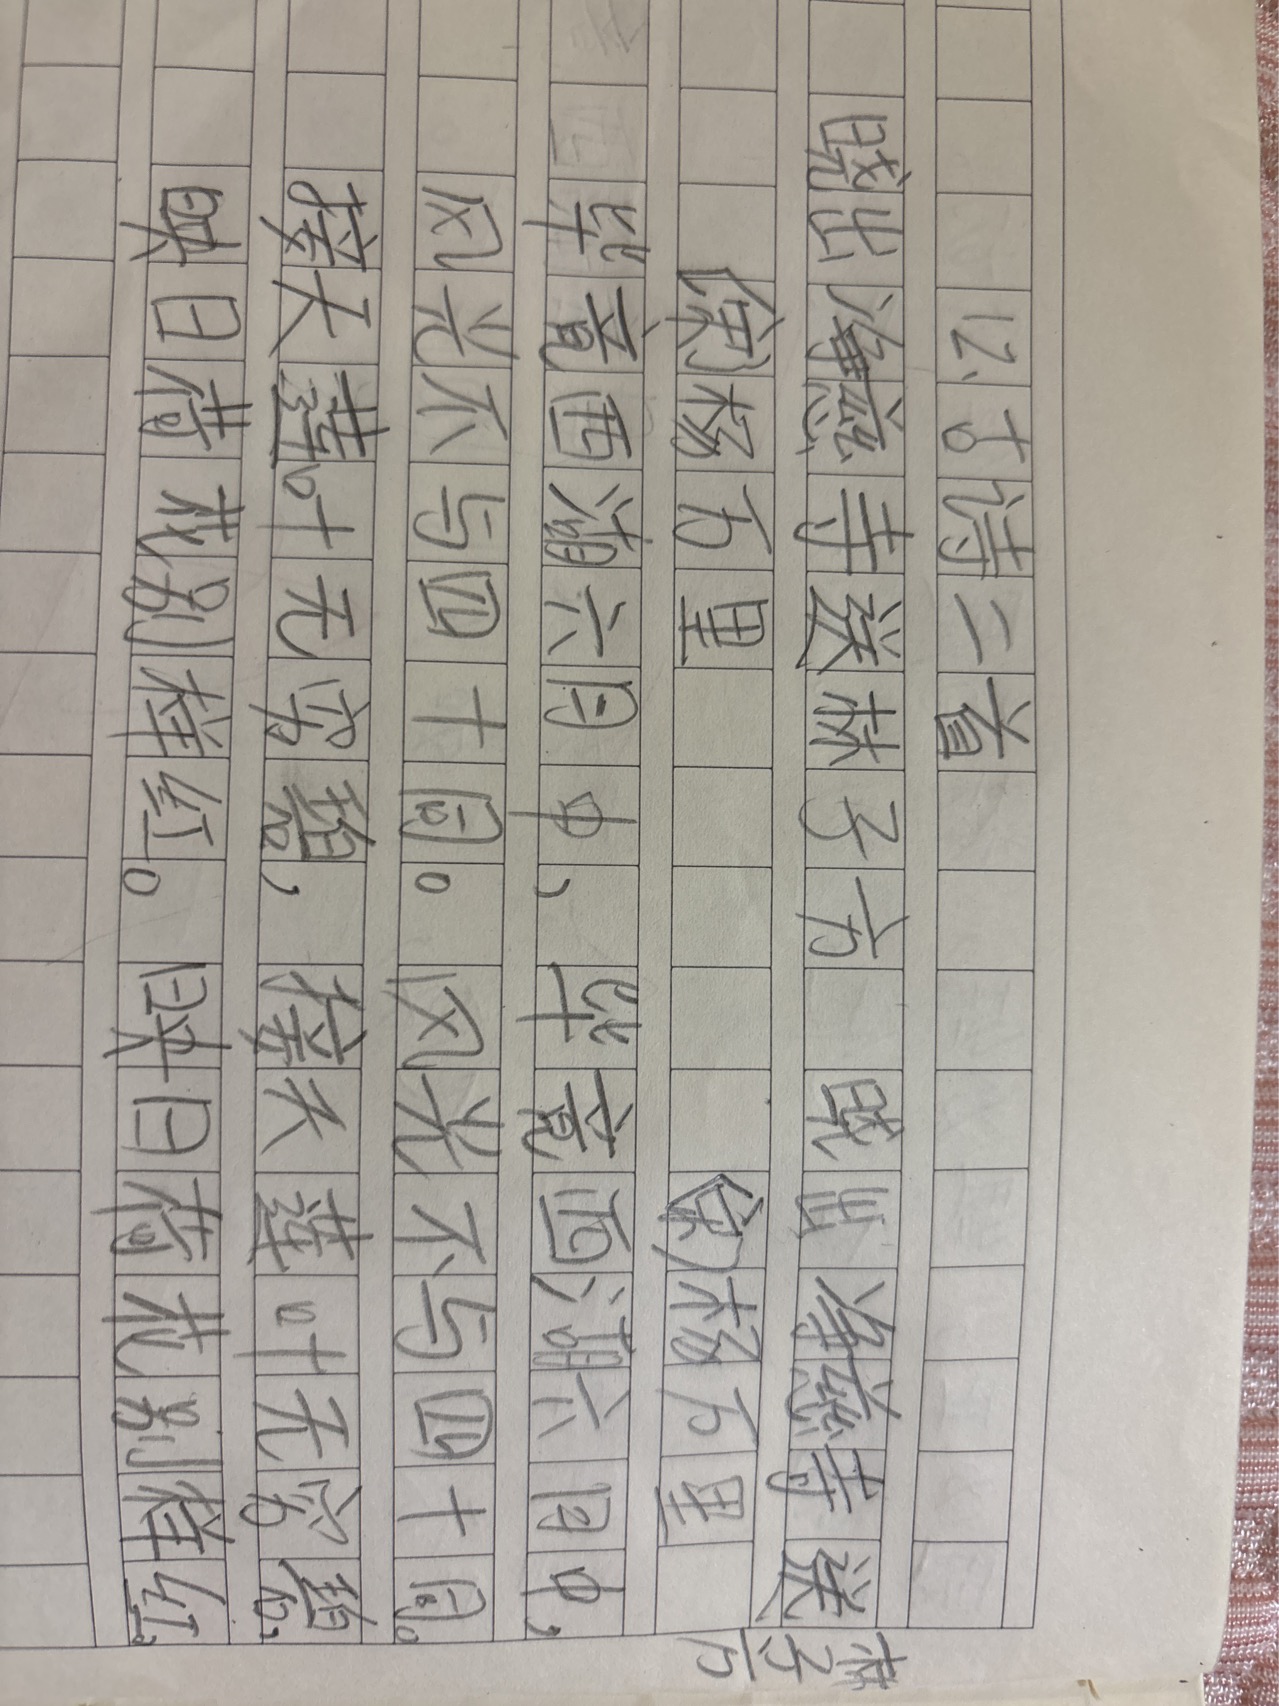 12、古诗二首
晓出净慈寺送林子方 晓出净慈寺送林子方
(宋)杨万里 (宋)杨万里
毕竟西湖六月中,毕竟西湖六月中,
风光不与四十同。风光不与四十同。
接天莲叶无穷碧,接天莲叶无穷碧,
映日荷花别样红。映日荷花别样红。